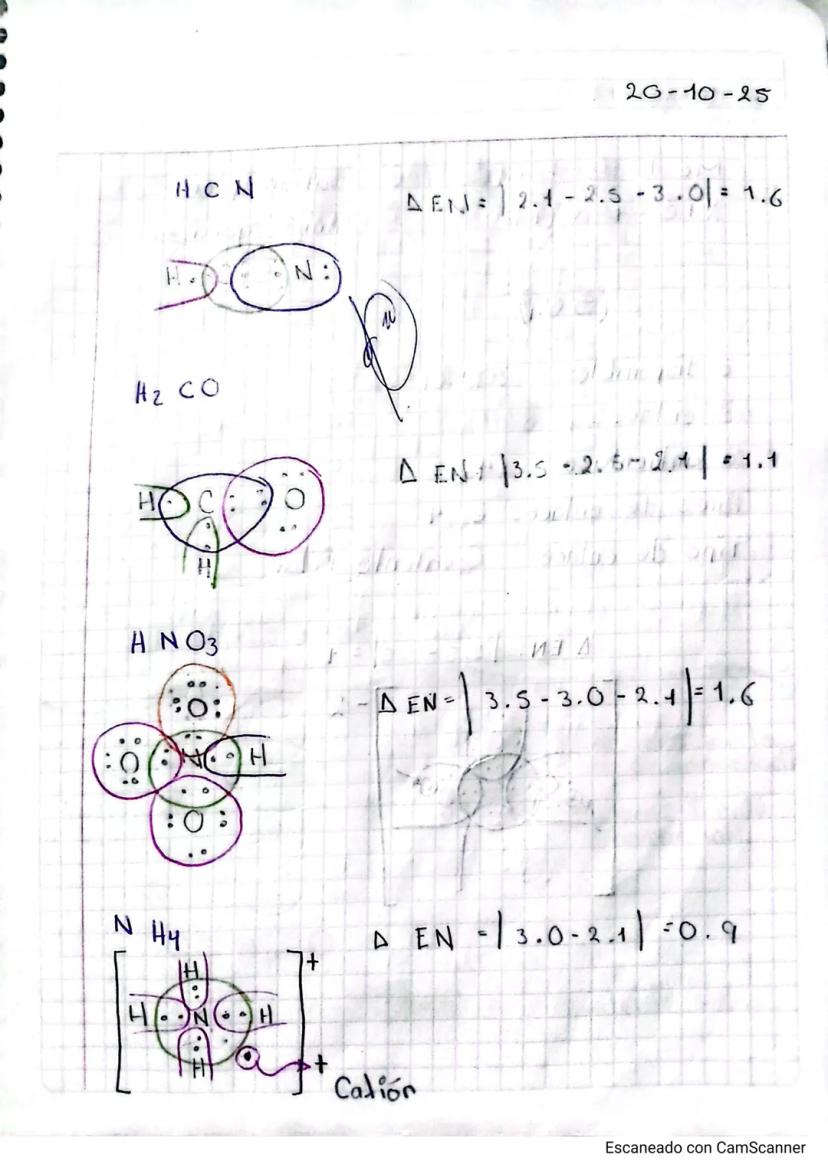 20-10-25
H C N
Δ EN = | 2.1 - 2.5 - 3.0| = 1.6
H C N :
H2 CO
Δ EN = |3.5 - 2.5 - 2.1| = 1.1
H C O
H
H NO3
Δ EN = | 3.5 - 3.0 - 2.1 | = 1.6
O
O N H
O
N H4
Δ EN = | 3.0 - 2.1 | = 0.9
[ ]+
H
H N H
H
+
Catión
Escaneado con CamScanner